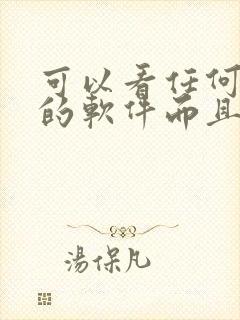 可以看任何
的軟件而且
湯保凡